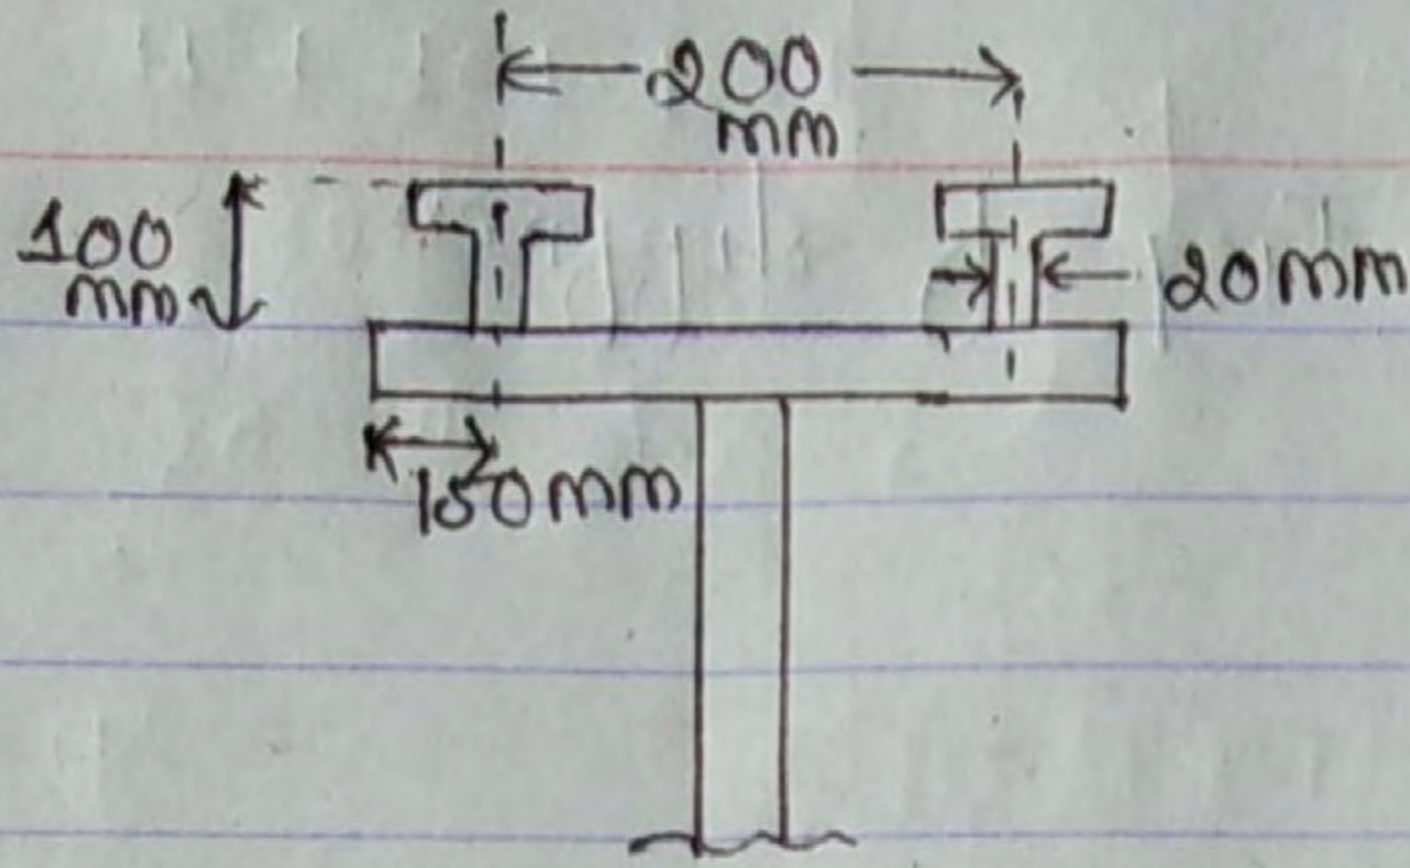 200
mm
100
mm
20mm
150mm